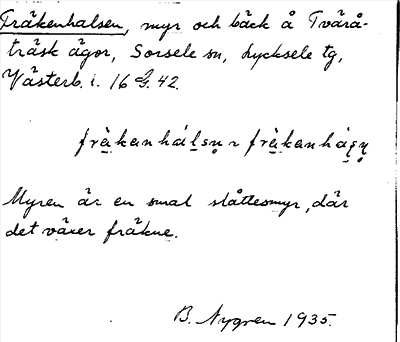 Fräkenhalsen, myr och bäck å Tvärå-
träsk ägor, Sorsele sn, Lycksele tg,
Västerb. l. 16 G. 42.
fräkanhálsn ~ fräkanhásn
Myren är en smal slåttesmyr, där
det växer fräkne.
B. Nygren 1935.